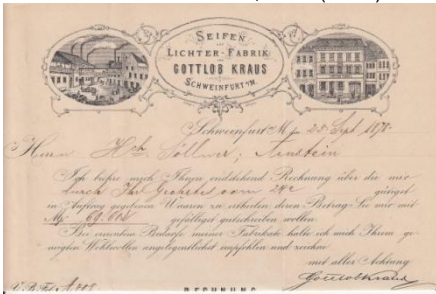 SEIFEN
LICHTER-FABRIK
GOTTLOB KRAUS
SCHWEINFURT a/M.
Schweinfurt a/M, 25 Sept 1878
Herrn Hch. Söllner, Arnstein
Ich beehre mich Ihnen umstehend Rechnung über die mir
durch Ihr Geehrtes vom 24r gütigst
in Auftrag gegebenen Waaren zu ertheilen deren Betrag Sie mir mit
M. gefälligst gutschreiben wollen.
Bei erneutem Bedarfe meiner Fabrikate halte ich mich Ihrem ge-
neigten Wohlwollen angelegentlichst empfohlen und zeichne
mit aller Achtung
Gottlob Kraus
RECHNUNG